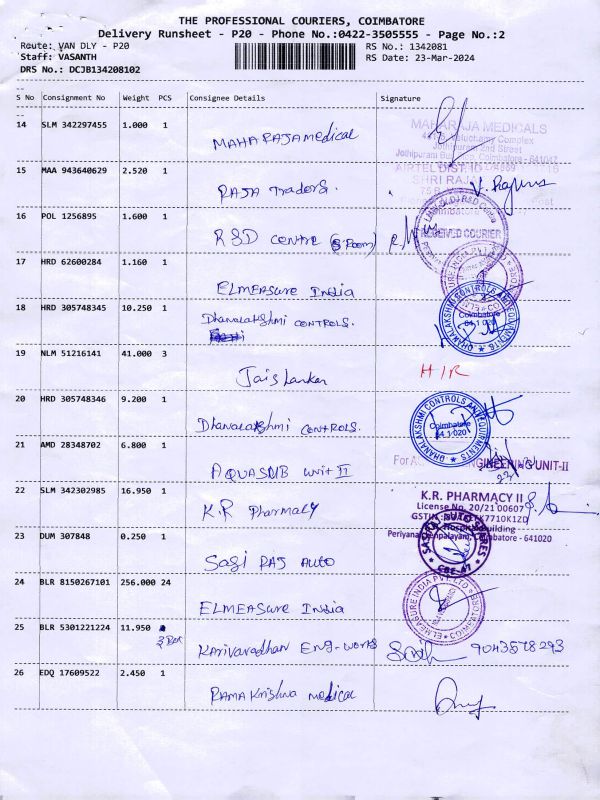 THE PROFESSIONAL COURIERS, COIMBATORE
Delivery Runsheet - P20 - Phone No.:0422-3505555 - Page No.:2
Route: VAN DLY - P20
RS No.: 1342081
Staff: VASANTH
RS Date: 23-Mar-2024
DRS No.: DCJB134208102
S No Consignment No Weight PCS Consignee Details Signature
14 SLM 342297455 1.000 1
MAHARAJA medical
MAHARAJA MEDICALS
15 MAA 943640629 2.520 1
RAJA Traders.
16 POL 1256895 1.600 1
R&D CENTRE
RECEIVED COURIER
17 HRD 62600284 1.160 1
ELMEASURE India
18 HRD 305748345 10.250 1
Dhanalakshmi CONTROLS.
DHANALAKSHMI CONTROLS AND EQUIPMENTS
Coimbatore
641 020
19 NLM 51216141 41.000 3
Jaishankar
H/R
20 HRD 305748346 9.200 1
Dhanalakshmi CONTROLS.
DHANALAKSHMI CONTROLS AND EQUIPMENTS
Coimbatore
641 020
21 AMD 28348702 6.800 1
AQUASUB unit II
ENGINEERING UNIT-II
22 SLM 342302985 16.950 1
K.R Pharmacy
K.R. PHARMACY II
License No. 20/21 00607
Coimbatore - 641020
23 DUM 307848 0.250 1
Sagi RAJ Auto
CBE-47
24 BLR 8150267101 256.000 24
ELMEASURE India
ELMEASURE INDIA PVT LTD
COIMBATORE
25 BLR 5301221224 11.950
Karivaradhan ENG-works
9043578293
26 EDQ 17609522 2.450 1
RAMAKrishna medical